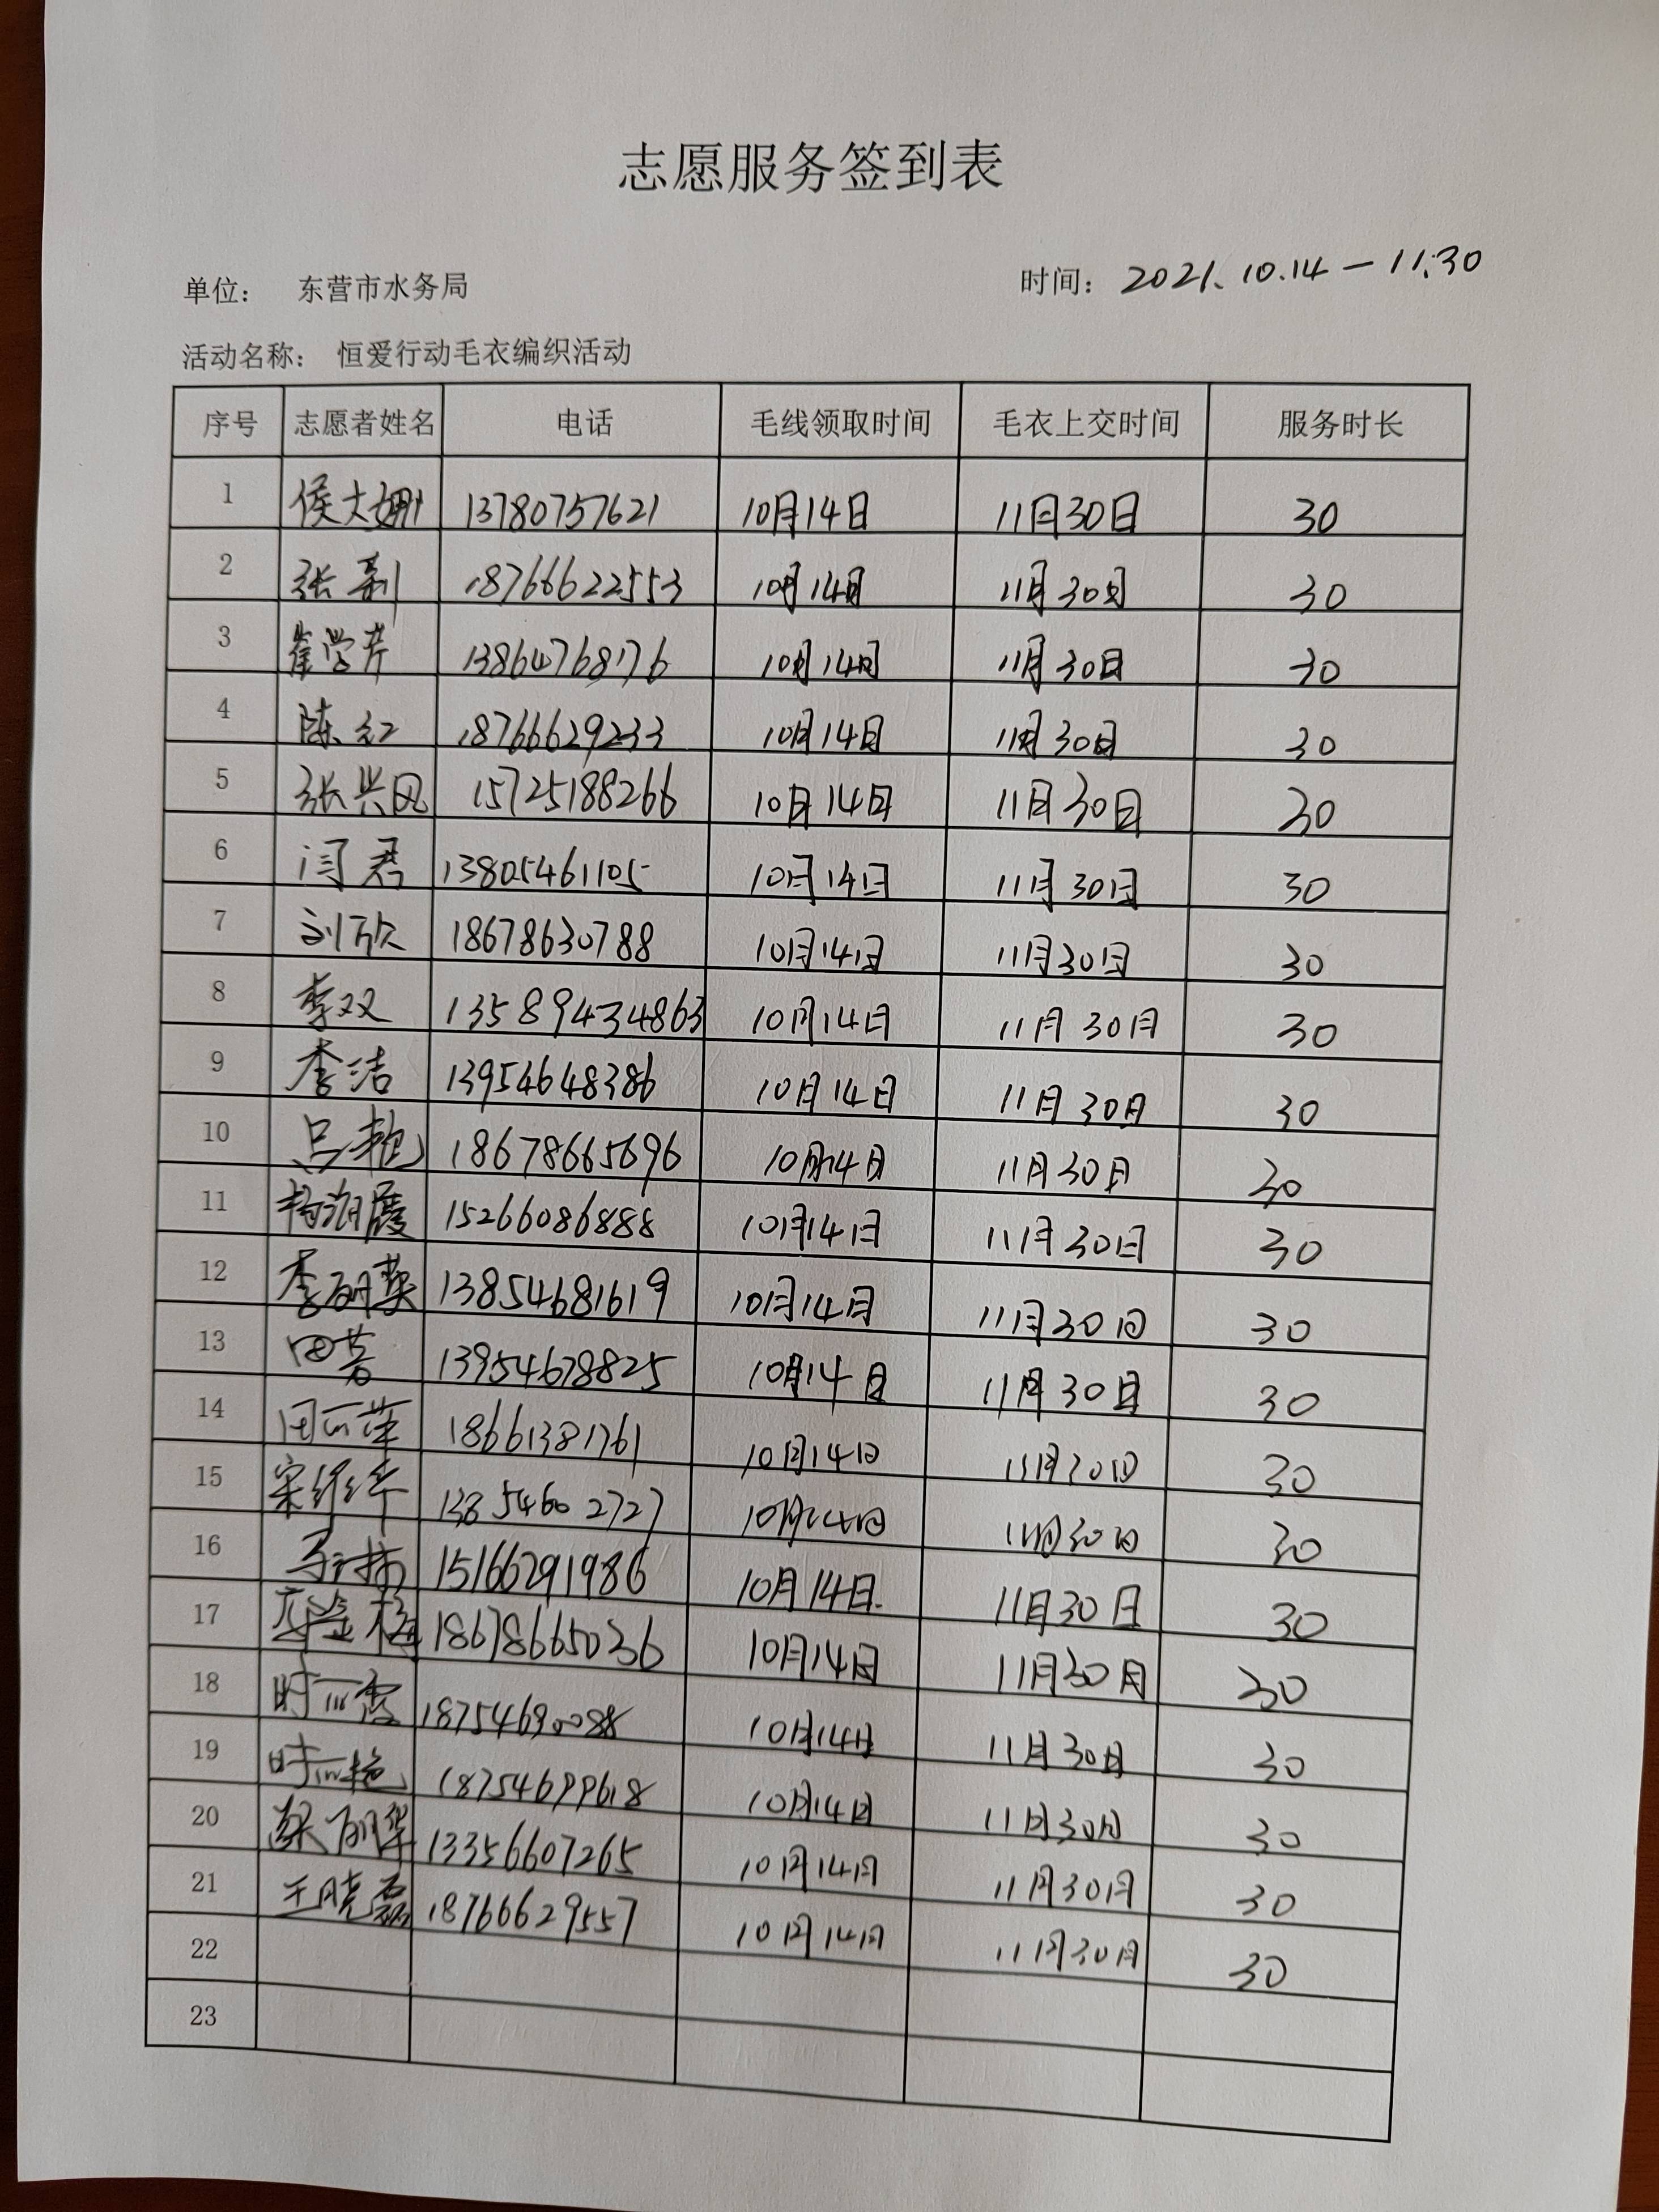 志愿服务签到表
单位： 东营市水务局 时间：2021.10.14－11.30
活动名称： 恒爱行动毛衣编织活动
序号 志愿者姓名 电话 毛线领取时间 毛衣上交时间 服务时长
1 侯大姗 13780757621 10月14日 11月30日 30
2 张 18766622553 10月14日 11月30日 30
3 崔学芹 13864768176 10月14日 11月30日 30
4 陈红 18766629233 10月14日 11月30日 30
5 张兴风 15725188266 10月14日 11月30日 30
6 闫君 13805461105 10月14日 11月30日 30
7 刘欣 18678630788 10月14日 11月30日 30
8 李双 13589434863 10月14日 11月30日 30
9 李洁 13954648386 10月14日 11月30日 30
10 吕艳 18678665696 10月14日 11月30日 30
11 杨海霞 15266086888 10月14日 11月30日 30
12 李丽英 13854681619 10月14日 11月30日 30
13 田芳 13954678825 10月14日 11月30日 30
14 田丽萍 18661381761 10月14日 11月30日 30
15 宋红华 13854602727 10月14日 11月30日 30
16 15166291986 10月14日. 11月30日 30
17 金梅 18678665036 10月14日 11月30日 30
18 时丽霞 18754690088 10月14日 11月30日 30
19 时丽艳 18754699618 10月14日 11月30日 30
20 梁丽华 13356607265 10月14日 11月30日 30
21 王晓磊 18766629557 10月14日 11月30日 30
22
23